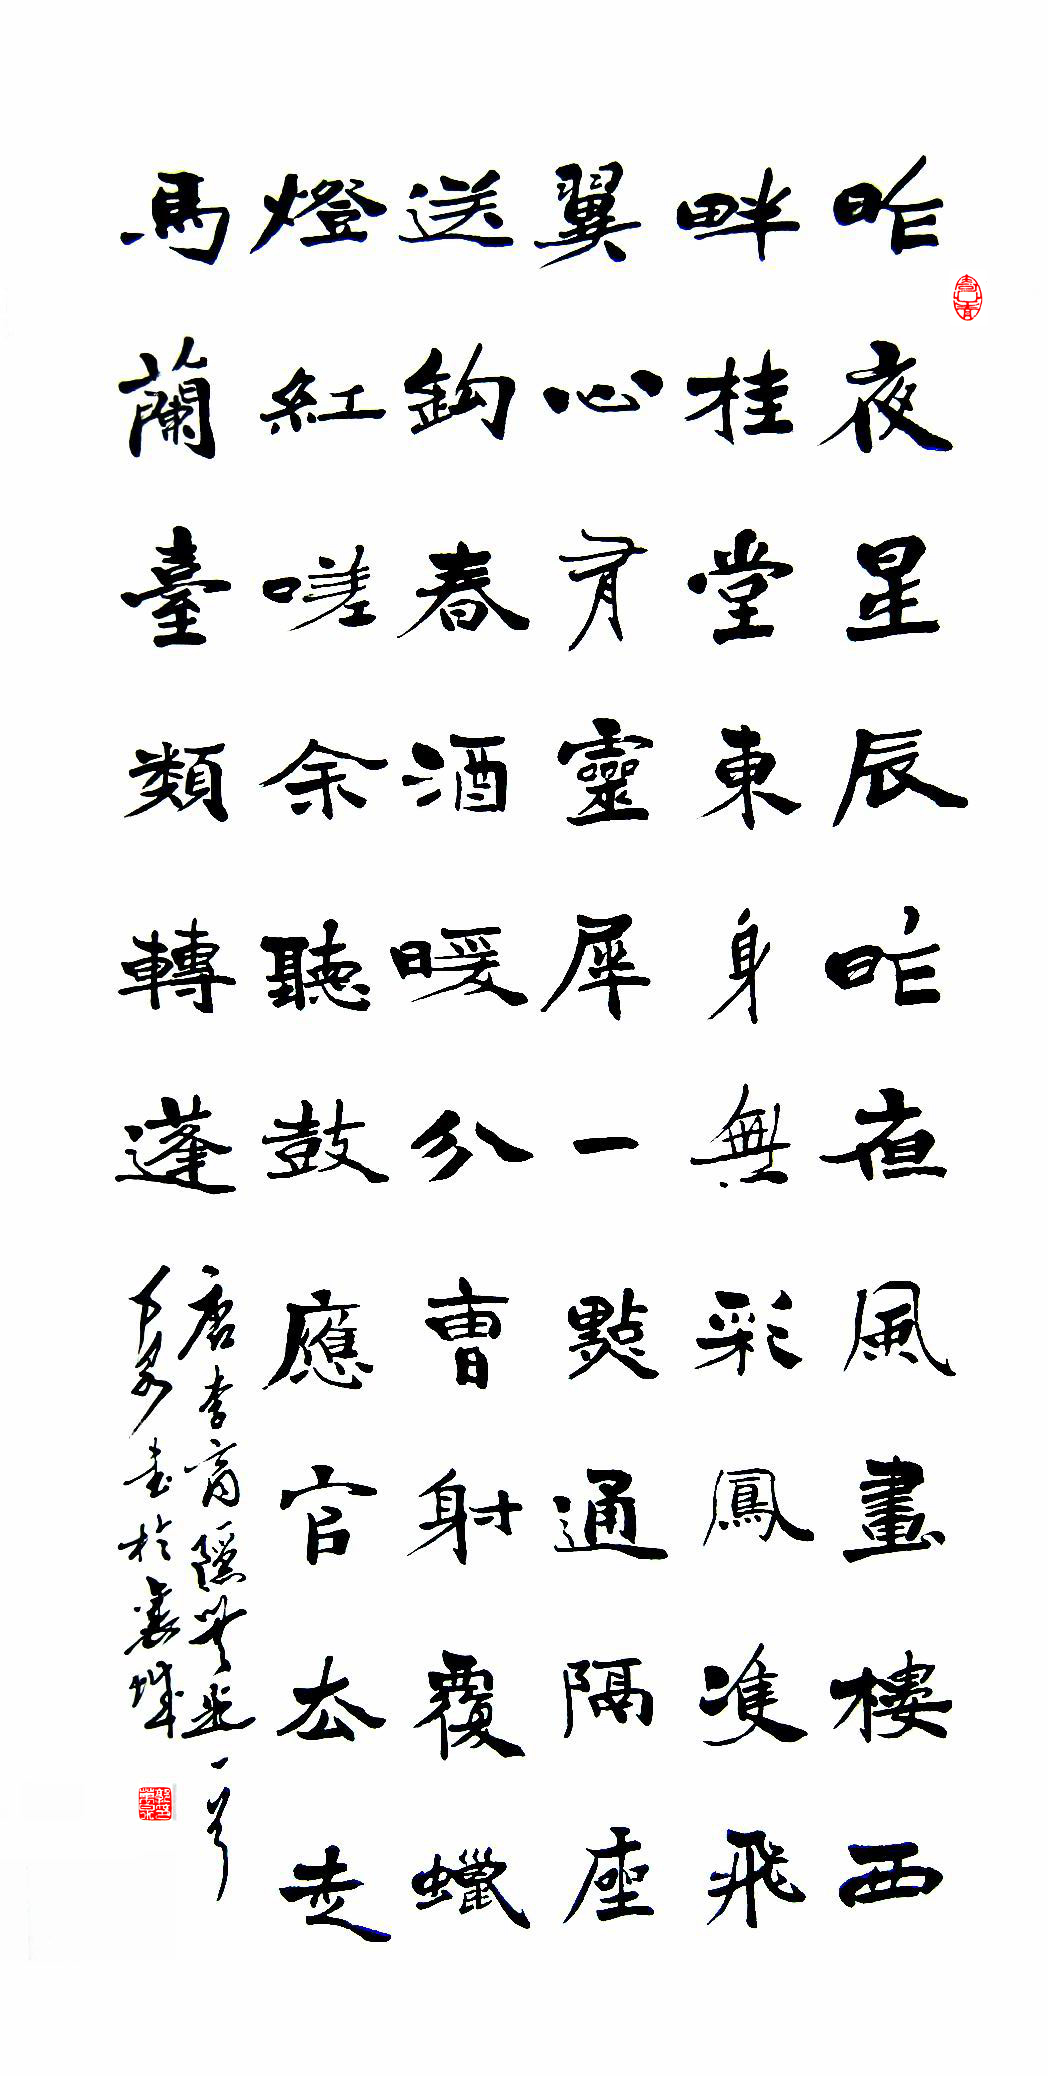 昨夜星辰昨夜風畫樓西
畔桂堂東身無彩鳳雙飛
翼心有靈犀一點通隔座
送鈎春酒暖分曹射覆蠟
燈紅嗟余聽鼓應官去走
馬蘭臺類轉蓬
唐李商隱無題一首
書於襄城